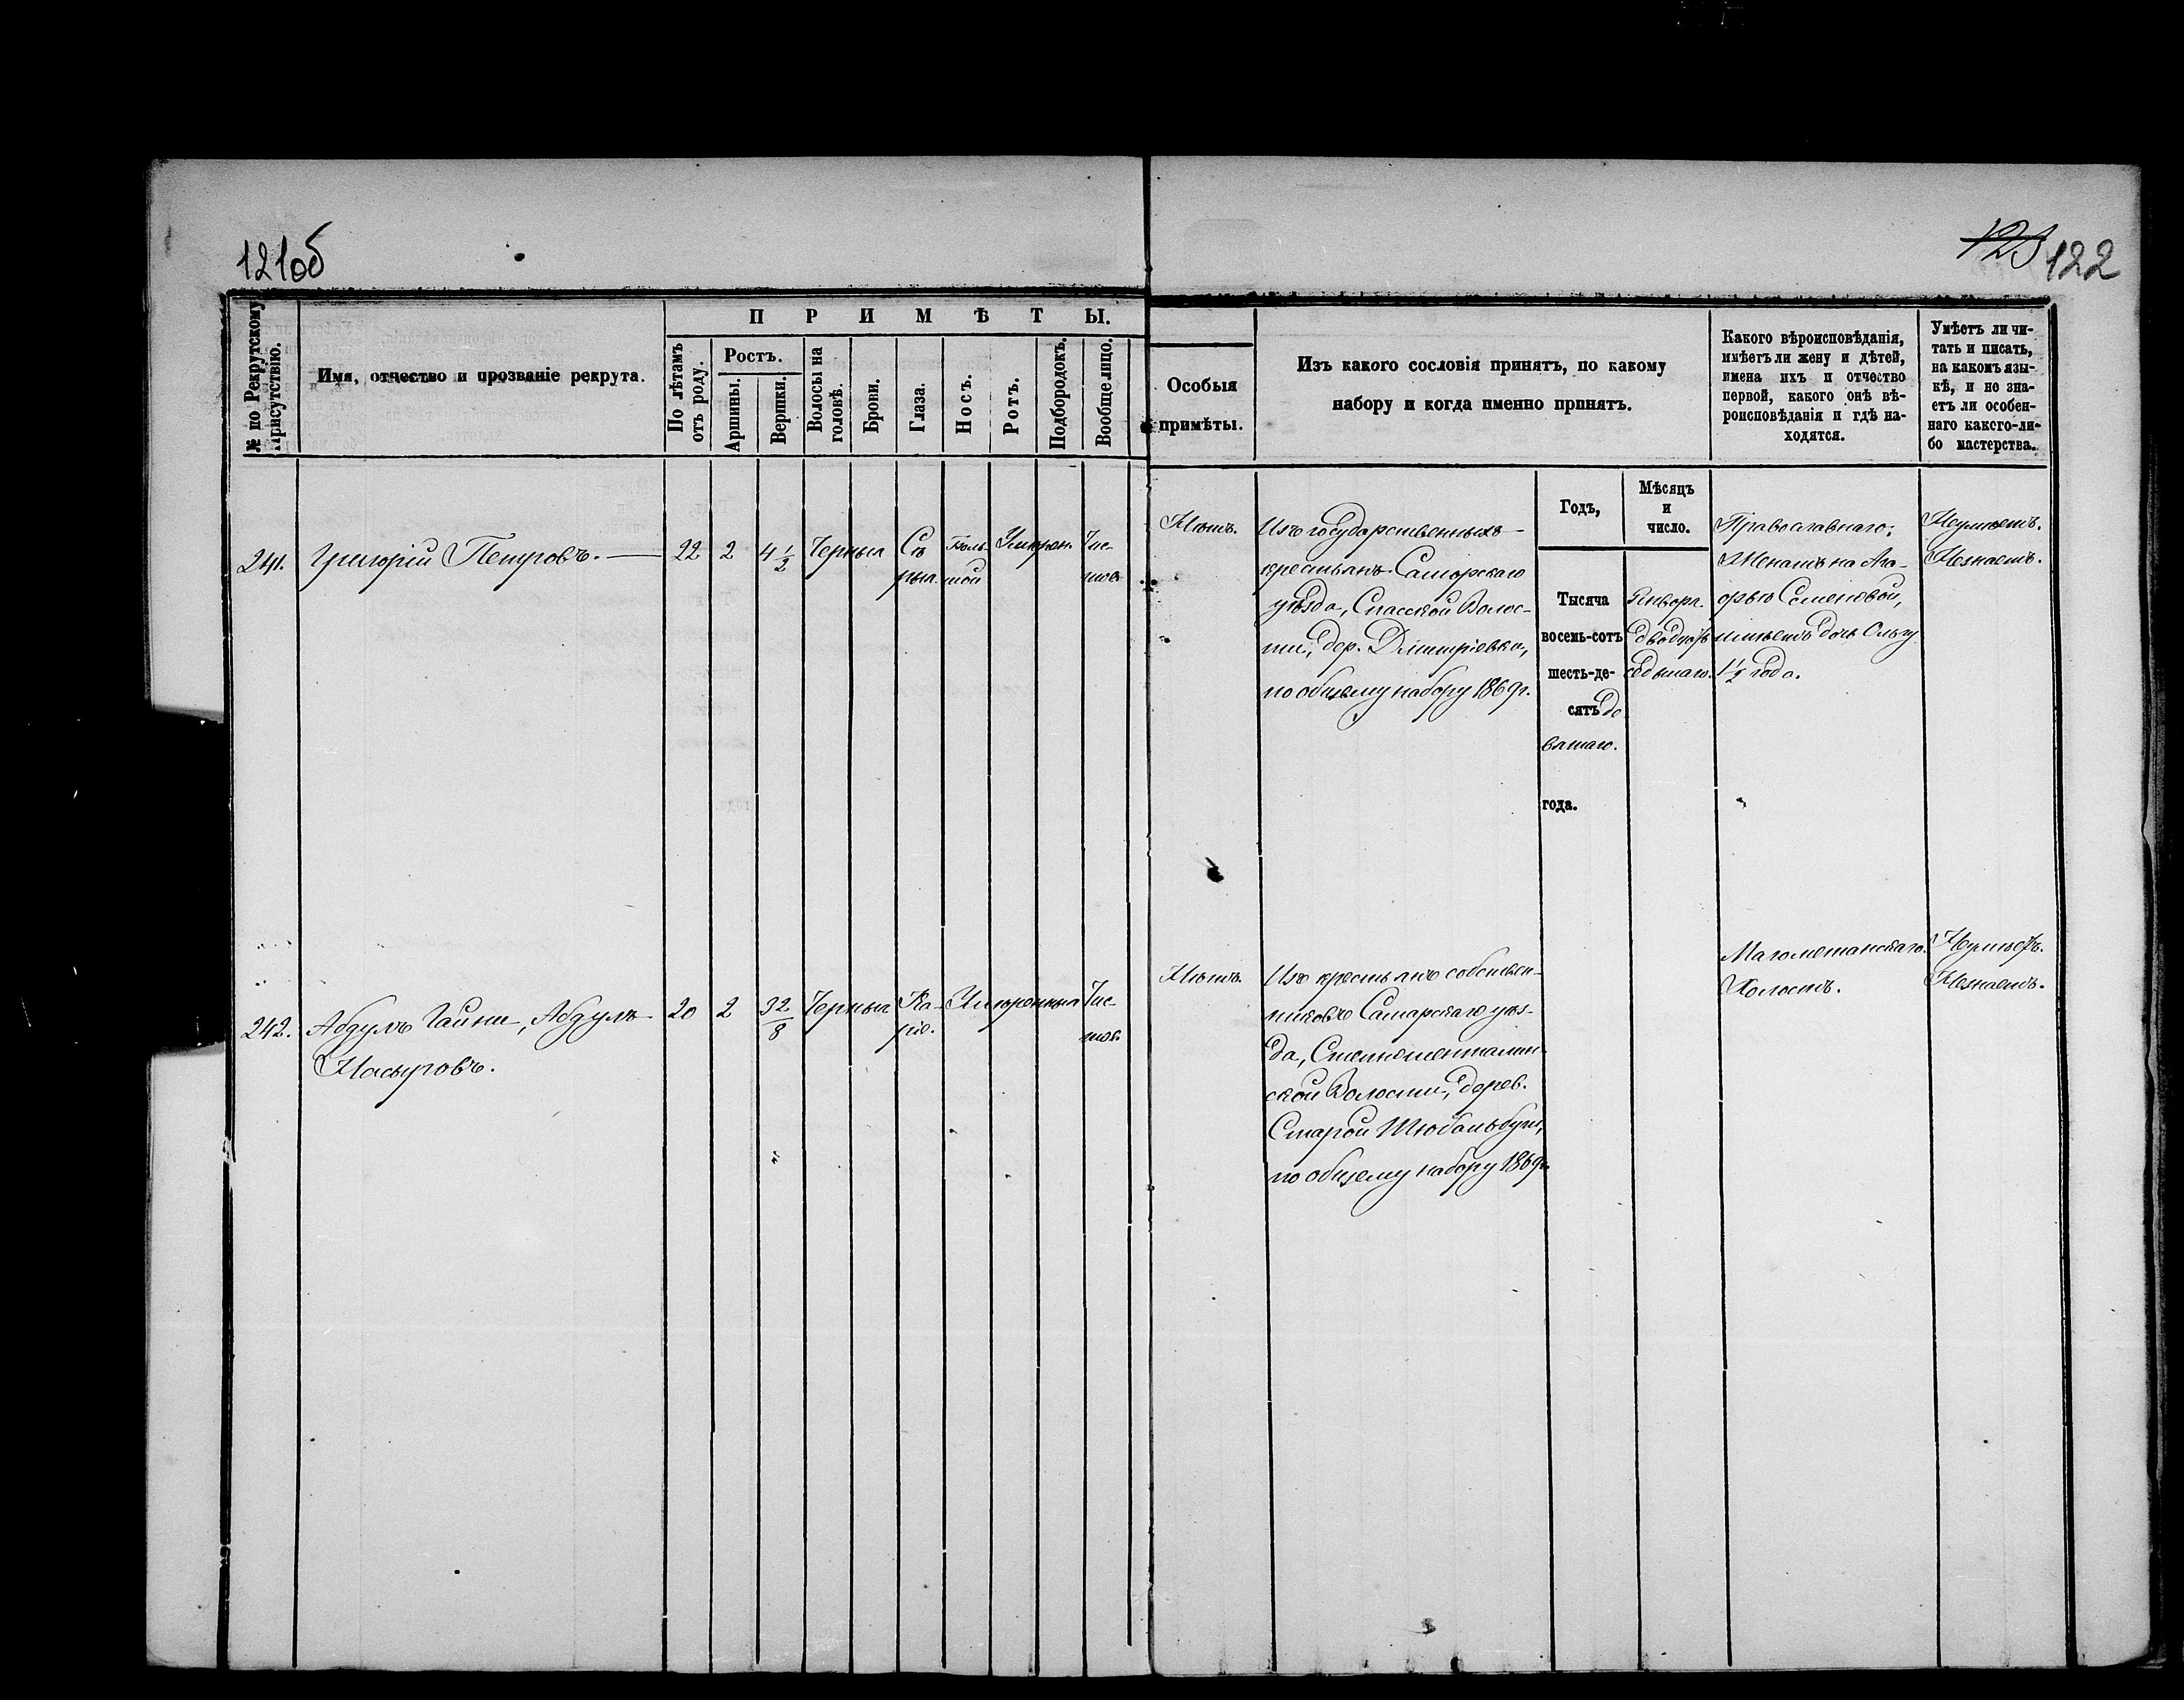 121об
123 122
№ по Рекрутскому Присутствію.
Имя, отчество и прозваніе рекрута.
ПРИМѢТЫ.
По лѣтамъ отъ роду.
Ростъ.
Аршины.
Вершки.
Волосы на головѣ.
Брови.
Глаза.
Носъ.
Ротъ.
Подбородокъ.
Вообще лицо.
Особыя
примѣты.
Изъ какого сословія принятъ, по какому
набору и когда именно принятъ.
Какого вѣроисповѣданія,
имѣетъ ли жену и дѣтей,
имена ихъ и отчество
первой, какого онѣ вѣ-
роисповѣданія и гдѣ на-
ходятся.
Умѣетъ ли чи-
тать и писать,
на какомъ язы-
кѣ, и не зна-
етъ ли особен-
наго какого-ли-
бо мастерства.
Годъ,
Мѣсяцъ
и
число.
241.
Григорій Петровъ.
22
2
4 1/2
Черныя
Сѣ
рыя.
Боль-
шой
Умѣрен.
Чис-
тое
Нѣтъ.
Изъ государственныхъ
крестьянъ Самарскаго
уѣзда, Спасской Волос-
ти, дер. Дмитріевки,
по общему набору 1869г.
Тысяча
восемь-сотъ
шесть-де-
сятъ де
вятаго.
года.
Января.
двадцать
седьмаго.
Православнаго;
Женатъ на
Семеновой,
имѣетъ дочь Ольгу
1½ года.
Неумѣетъ.
Незнаетъ.
242.
Абдулъ Гайни, Абдулъ
Насыровъ.
20
2
32/8
Черныя
Ка-
ріе.
Умѣренный
Чис-
тое
Нѣтъ.
Изъ крестьянъ собствен-
никовъ Самарскаго уѣз-
да,
ской Волости, дерев.
Старой
по общему набору 1869г.
Магометанскаго.
Холостъ.
Неумѣетъ.
Незнаетъ.